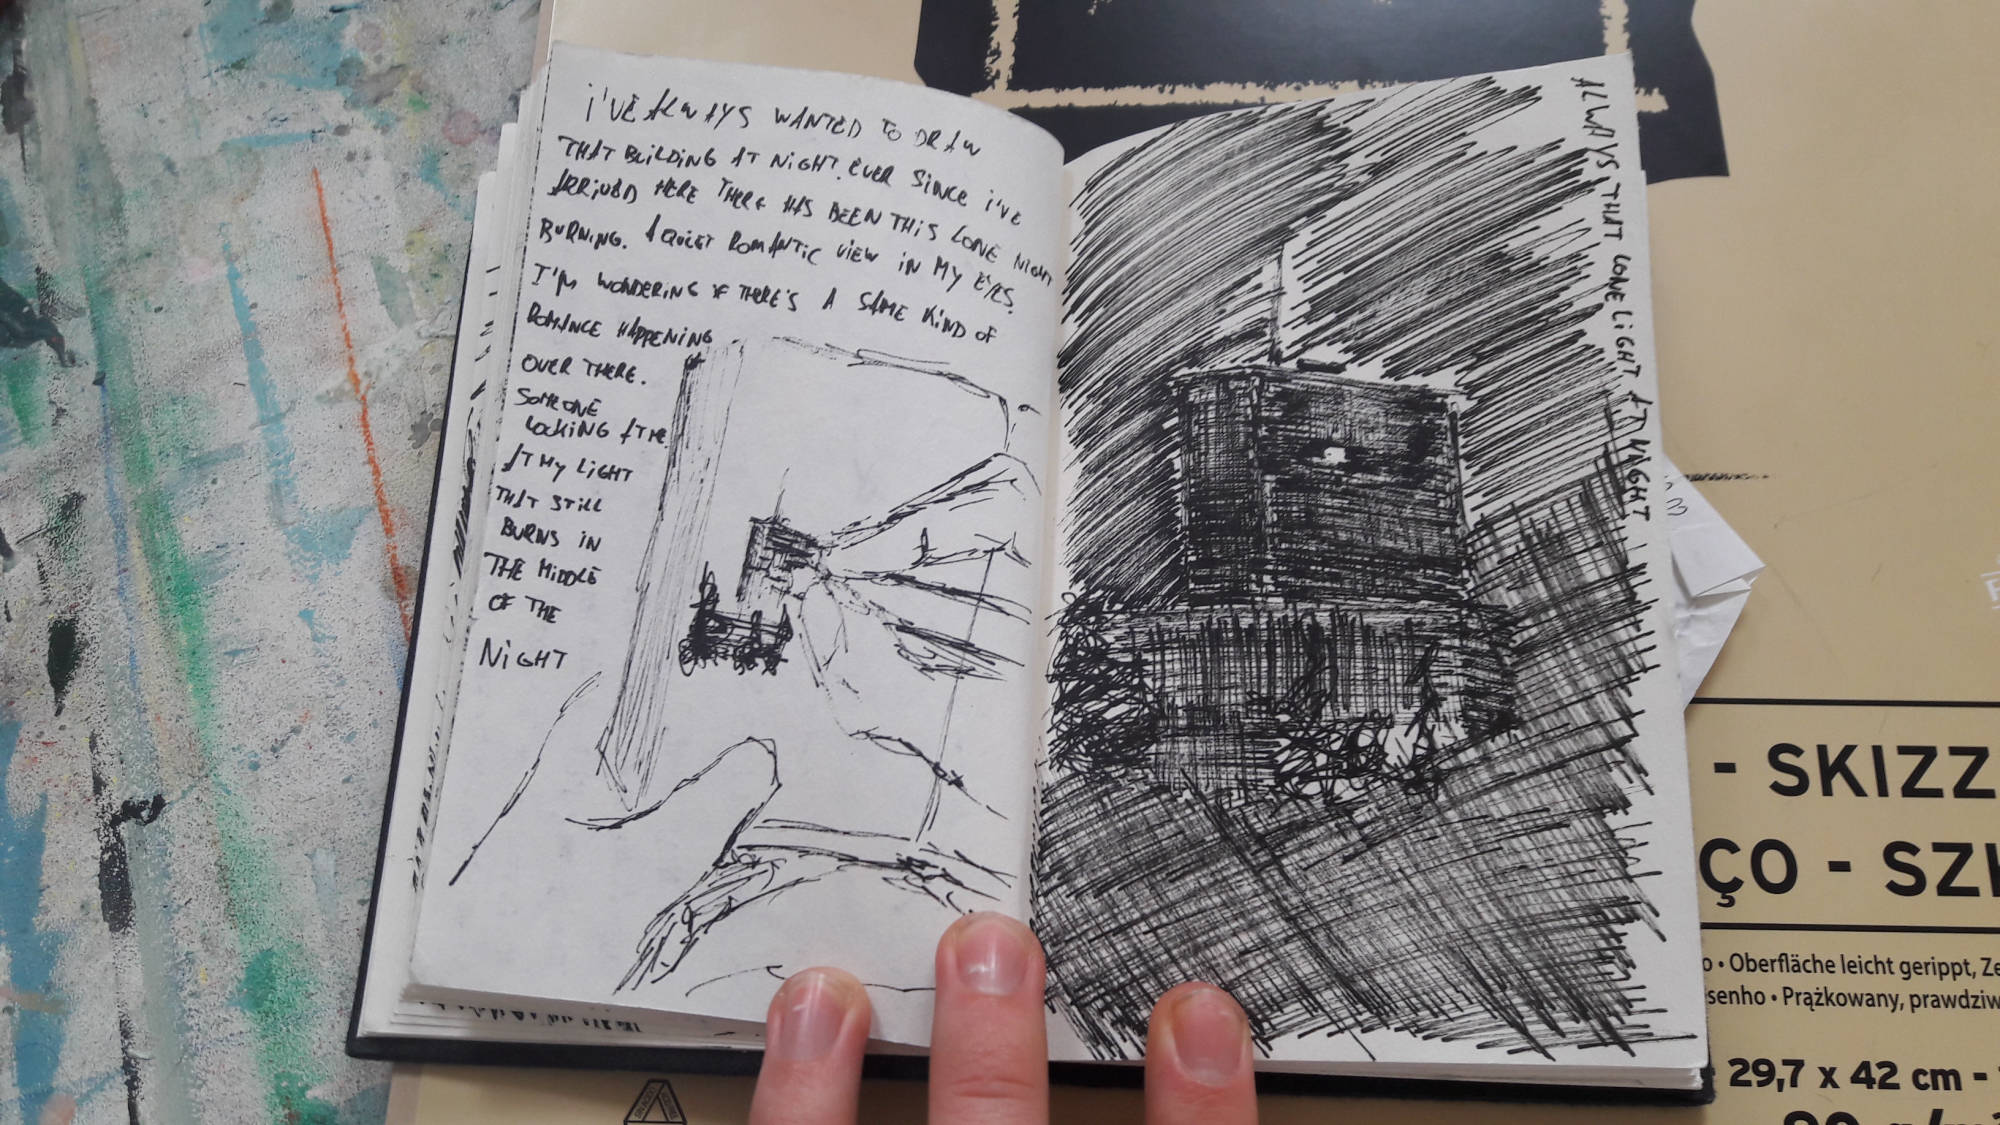 I'VE ALWAYS WANTED TO DRAW
THAT BUILDING AT NIGHT. EVER SINCE I'VE
ARRIVED HERE THERE HAS BEEN THIS LONE NIGHT
BURNING. A QUIET ROMANTIC VIEW IN MY EYES.
I'M WONDERING IF THERE'S A SAME KIND OF
ROMANCE HAPPENING
OVER THERE.
SOMEONE
LOOKING
AT MY LIGHT
THAT STILL
BURNS IN
THE MIDDLE
OF THE
NIGHT
ALWAYS THAT LONE LIGHT AT NIGHT
- SKIZZ
ÇO - SZK
o • Oberfläche leicht gerippt, Ze
senho • Prążkowany, prawdziw
29,7 x 42 cm -